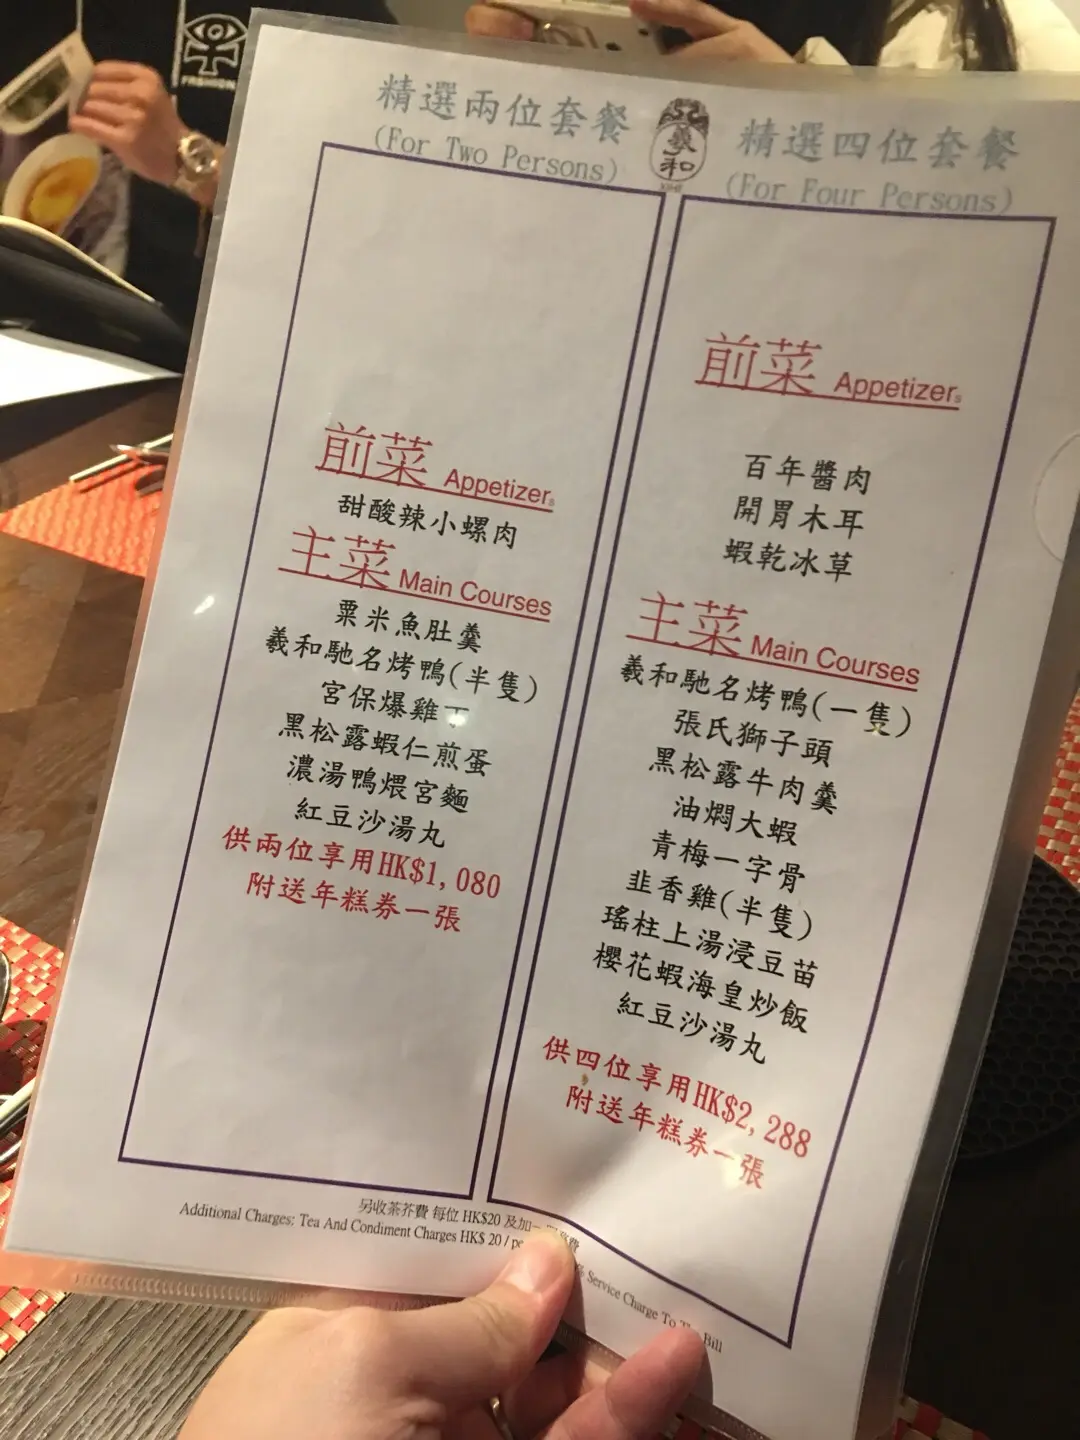 FASHION
精選兩位套餐
(For Two Persons)
羲和
精選四位套餐
(For Four Persons)
前菜 Appetizers
甜酸辣小螺肉
主菜 Main Courses
粟米魚肚羹
羲和馳名烤鴨(半隻)
宮保爆雞丁
黑松露蝦仁煎蛋
濃湯鴨煨宮麵
紅豆沙湯丸
供兩位享用HK$1,080
附送年糕券一張
前菜 Appetizers
百年醬肉
開胃木耳
蝦乾冰草
主菜 Main Courses
羲和馳名烤鴨(一隻)
張氏獅子頭
黑松露牛肉羹
油燜大蝦
青梅一字骨
韭香雞(半隻)
瑤柱上湯浸豆苗
櫻花蝦海皇炒飯
紅豆沙湯丸
供四位享用HK$2,288
附送年糕券一張
另收茶芥費 每位 HK$20 及加一 費
Additional Charges: Tea And Condiment Charges HK$ 20 / Service Charge To The Bill